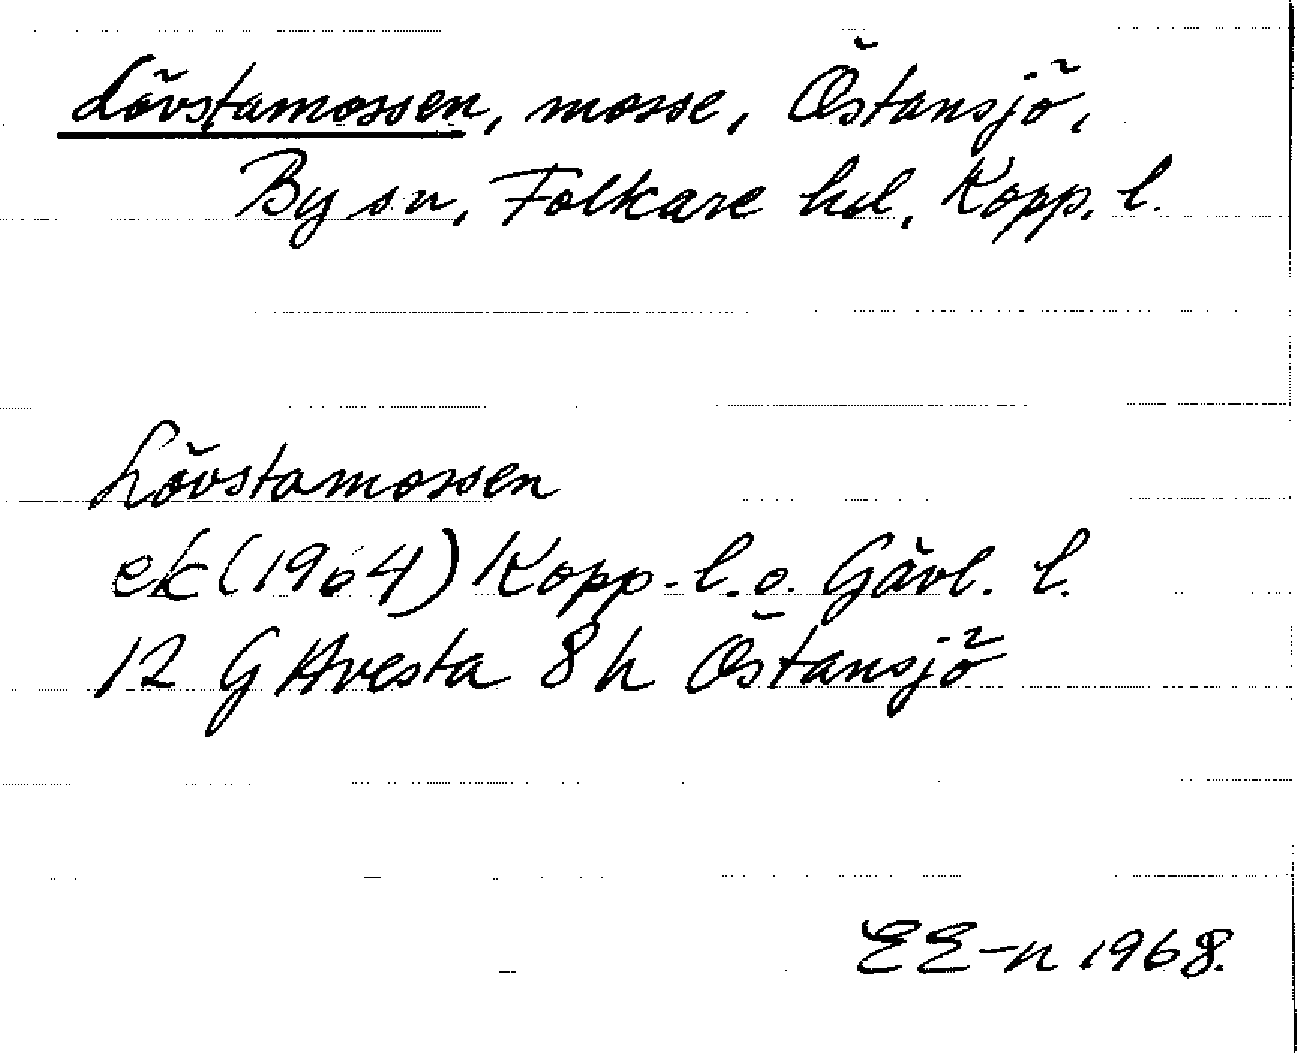 Lövstamossen, mosse, Östansjö,
By sn, Folkare hd, Kopp. l.
Lövstamossen
ek (1964) Kopp. l. o. Gävl. l.
12 G Avesta 8 h Östansjö
EE-n 1968.